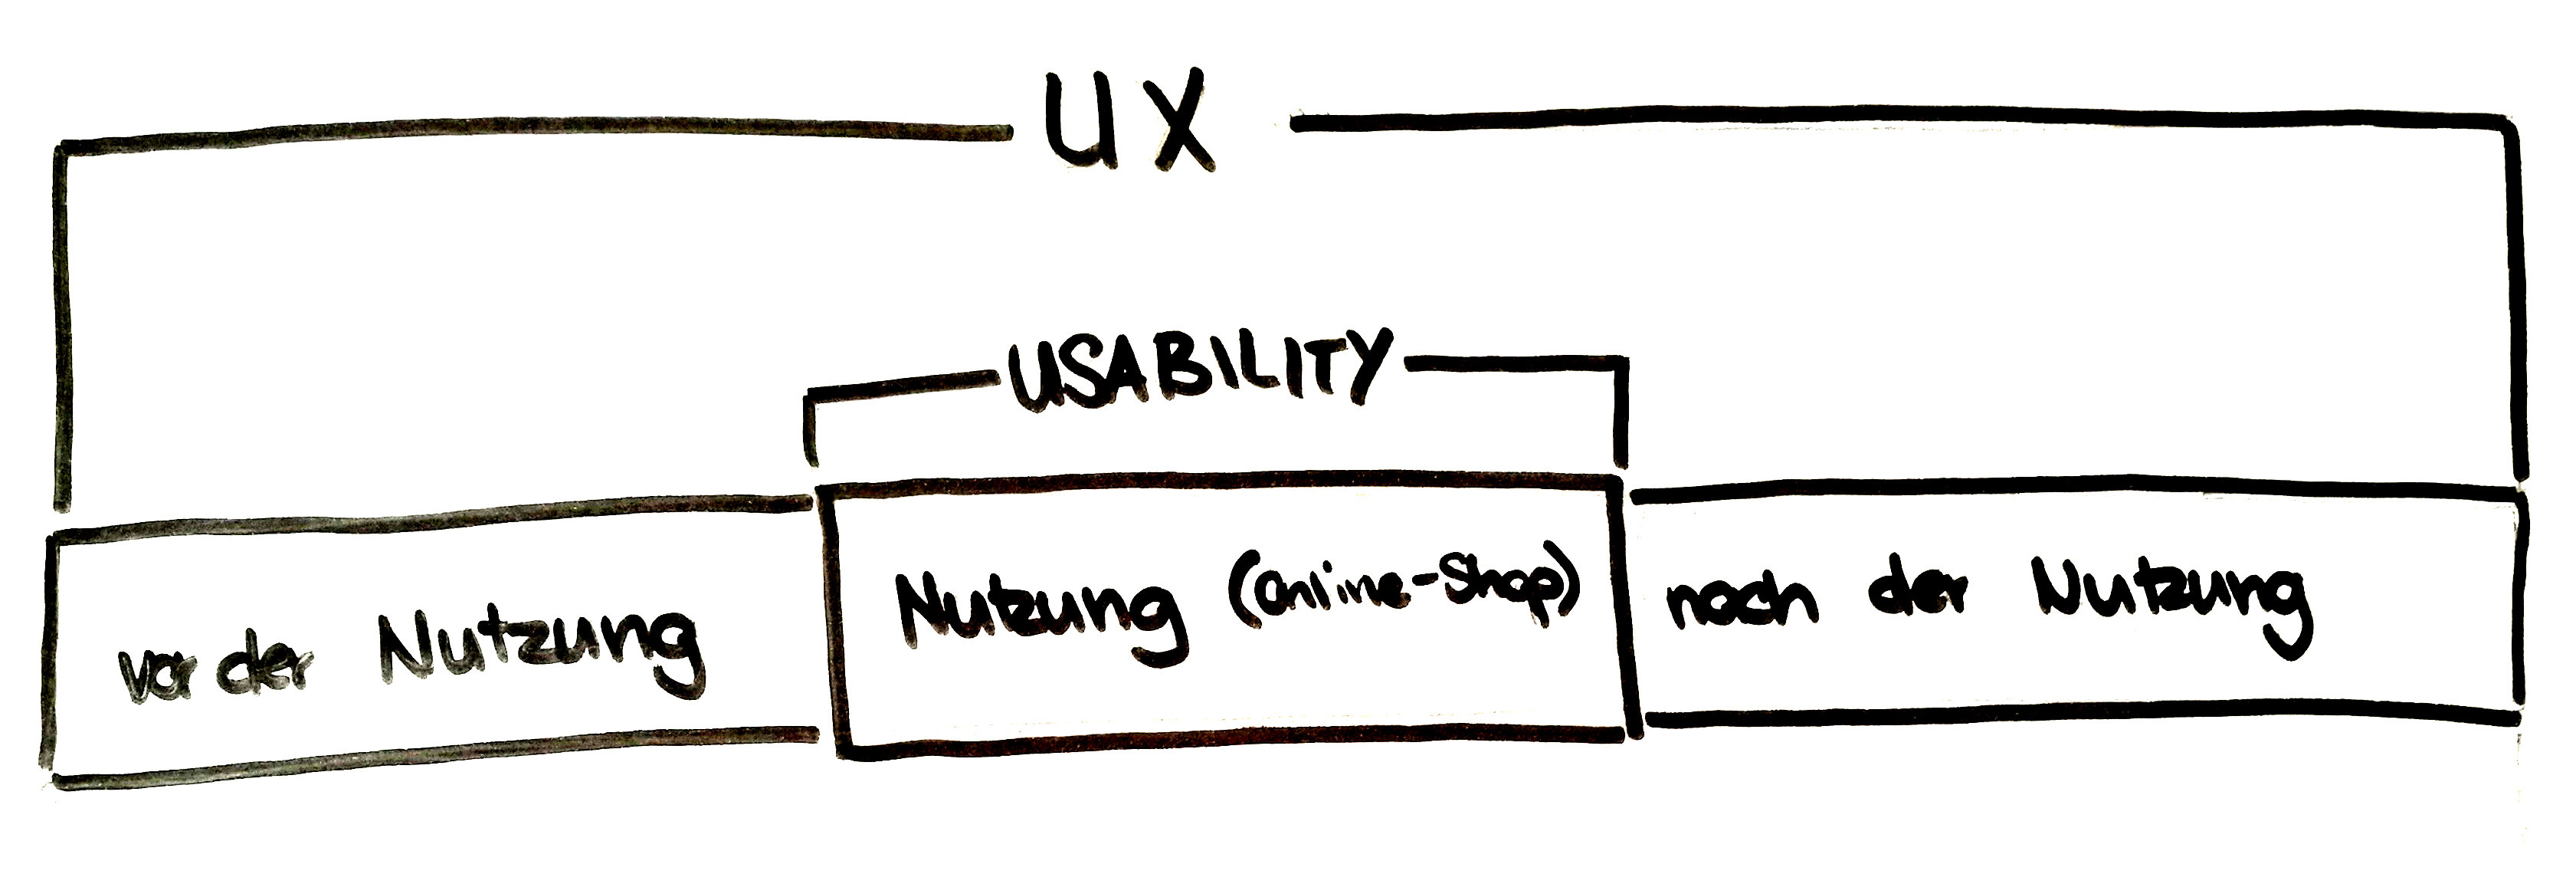 UX
USABILITY
vor der Nutzung
Nutzung (Online-Shop)
nach der Nutzung